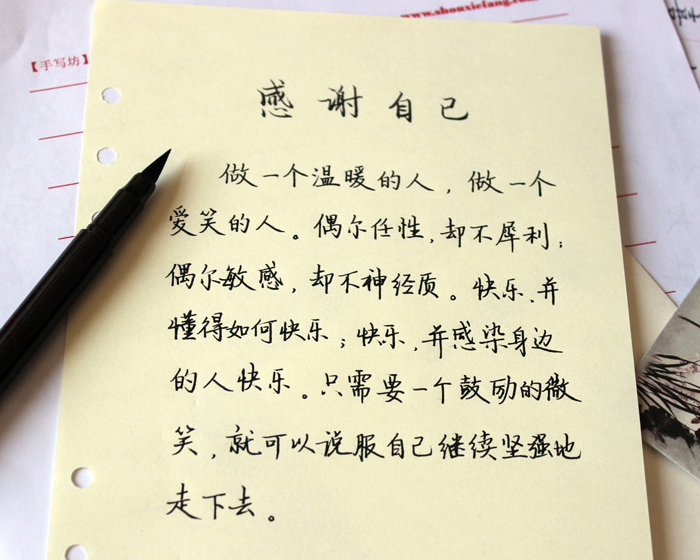 www.shouxiefang.com
【手写坊】
感谢自己
做一个温暖的人，做一个
爱笑的人。偶尔任性，却不犀利；
偶尔敏感，却不神经质。快乐，并
懂得如何快乐；快乐，并感染身边
的人快乐。只需要一个鼓励的微
笑，就可以说服自己继续坚强地
走下去。